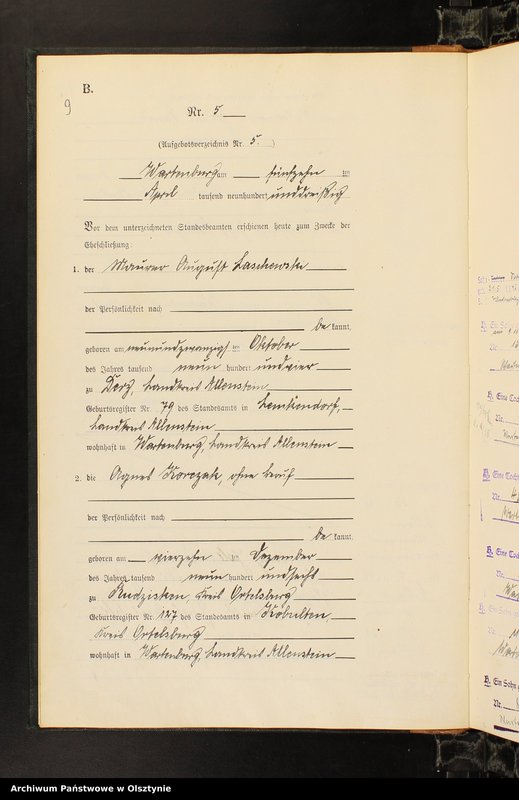 B.
9
Nr. 5
(Aufgebotsverzeichnis Nr. 5.)
Wartenburg am fünfzehn ten
April tausend neunhundert unddreißig
Vor dem unterzeichneten Standesbeamten erschienen heute zum Zwecke der
Eheschließung:
1. der Maurer August Laschewski
der Persönlichkeit nach
be kannt,
geboren am neunundzwanzigsten Oktober
des Jahres tausend neun hundert undvier
zu Derz, Landkreis Allenstein
Geburtsregister Nr. 79 des Standesamts in Lemkendorf,
Landkreis Allenstein
wohnhaft in Wartenburg, Landkreis Allenstein
2. die Agnes Korczak, ohne Beruf
der Persönlichkeit nach
be kannt,
geboren am vierzehn ten Dezember
des Jahres tausend neun hundert undsechs
zu Rudzisken, Kreis Ortelsburg
Geburtsregister Nr. 127 des Standesamts in Kobulten,
Kreis Ortelsburg
wohnhaft in Wartenburg, Landkreis Allenstein
H. Eine Toch
Nr.
H. Eine Toch
Nr.
H. Eine Toch
Nr.
H. Ein Sohn
Nr.
Archiwum Państwowe w Olsztynie